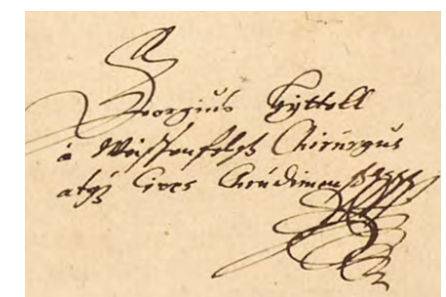 Georgius Gÿttell
à Weissenfelsz Chirúrgus
atqz Civis Chrúdimens